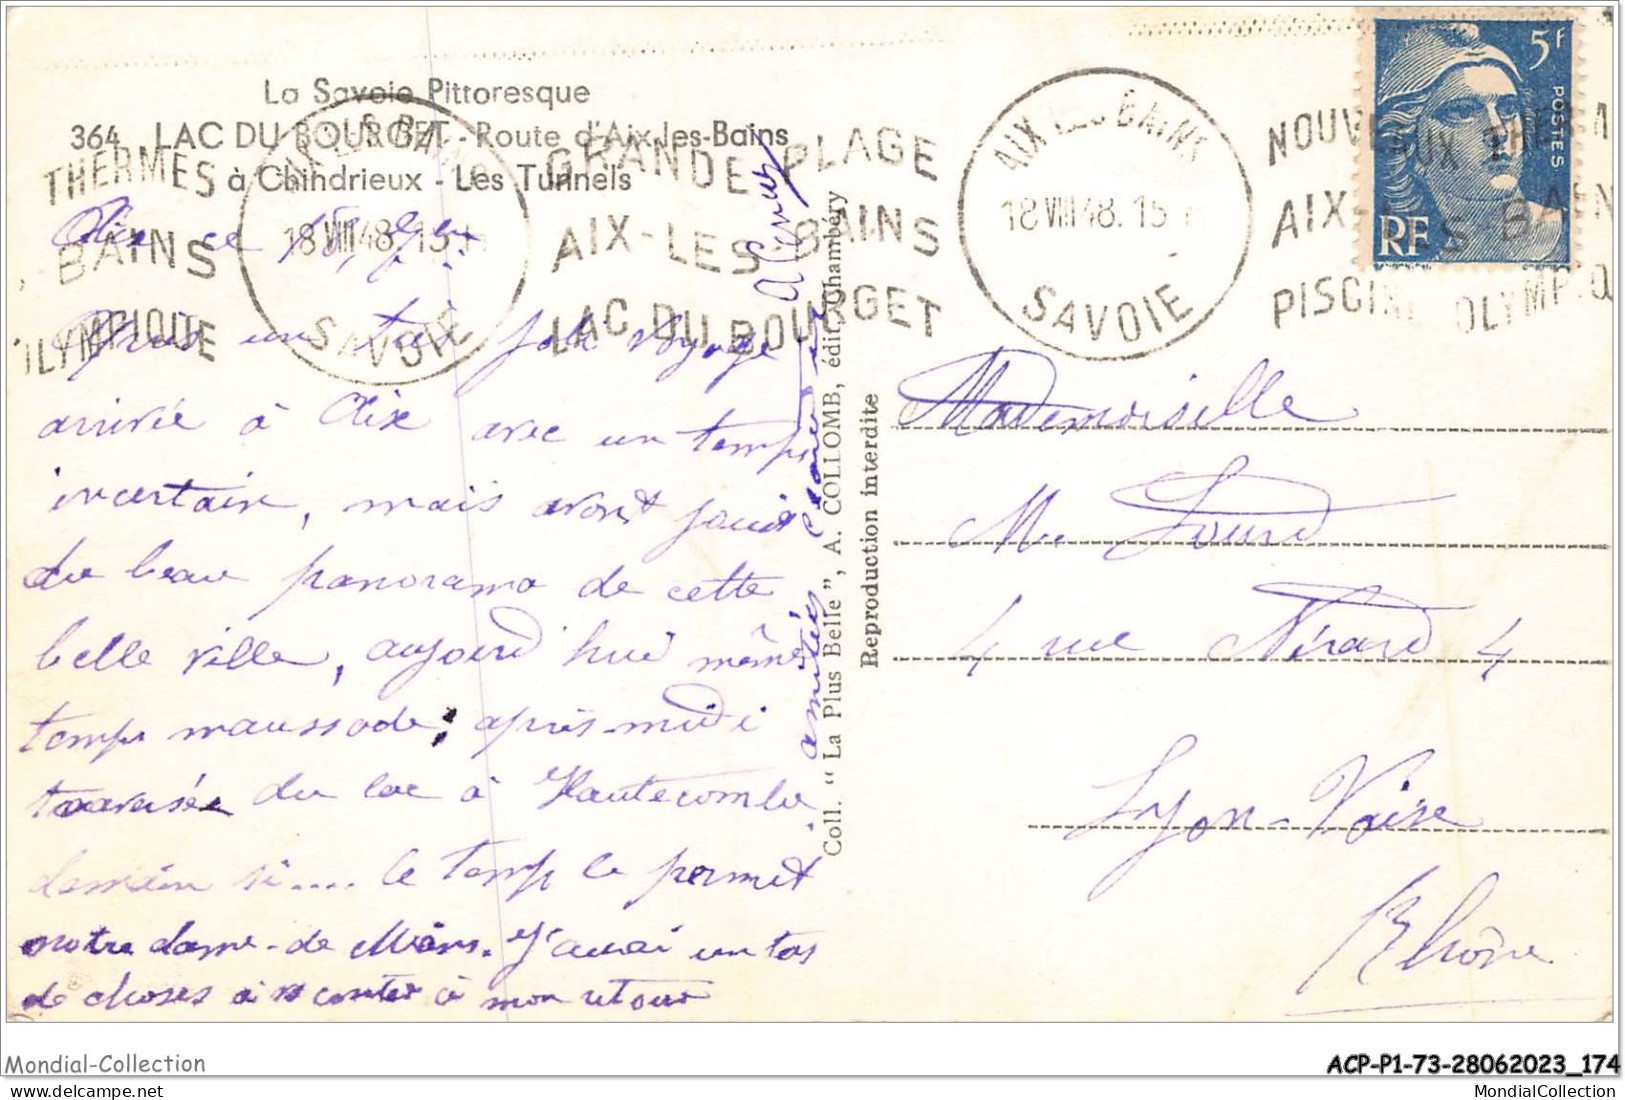 La Savoie Pittoresque
364. LAC DU BOURGET - Route d'Aix-les-Bains
à Chindrieux - Les Tunnels
THERMES
BAINS
OLYMPIQUE
AIX-LES-BAINS
18 VIII 48. 15
SAVOIE
GRANDE PLAGE
AIX-LES-BAINS
LAC DU BOURGET
AIX-LES-BAINS
18 VIII 48. 15
SAVOIE
NOUVEAUX THERM
AIX-LES-BAIN
PISCINE OLYMPIQ
5F
POSTES
RF
Aix ce
Après un très joli voyage
arrivée à Aix avec un temps
incertain, mais avons jouit
du beau panorama de cette
belle ville, aujourd'hui même
temps maussade; après-midi
traversée du lac à Hautecombe
demain si.... le temps le permet
notre dame-de Mians. J'aurai un tas
de choses à raconter à mon retour
amitiés
Coll. "La Plus Belle", A. COLLOMB, édit., Chambéry
Reproduction interdite
Mademoiselle
M. Lourd
4 rue Nérard 4
Lyon-Vaise
Rhône
Mondial-Collection
ACP-P1-73-28062023_174
MondialCollection